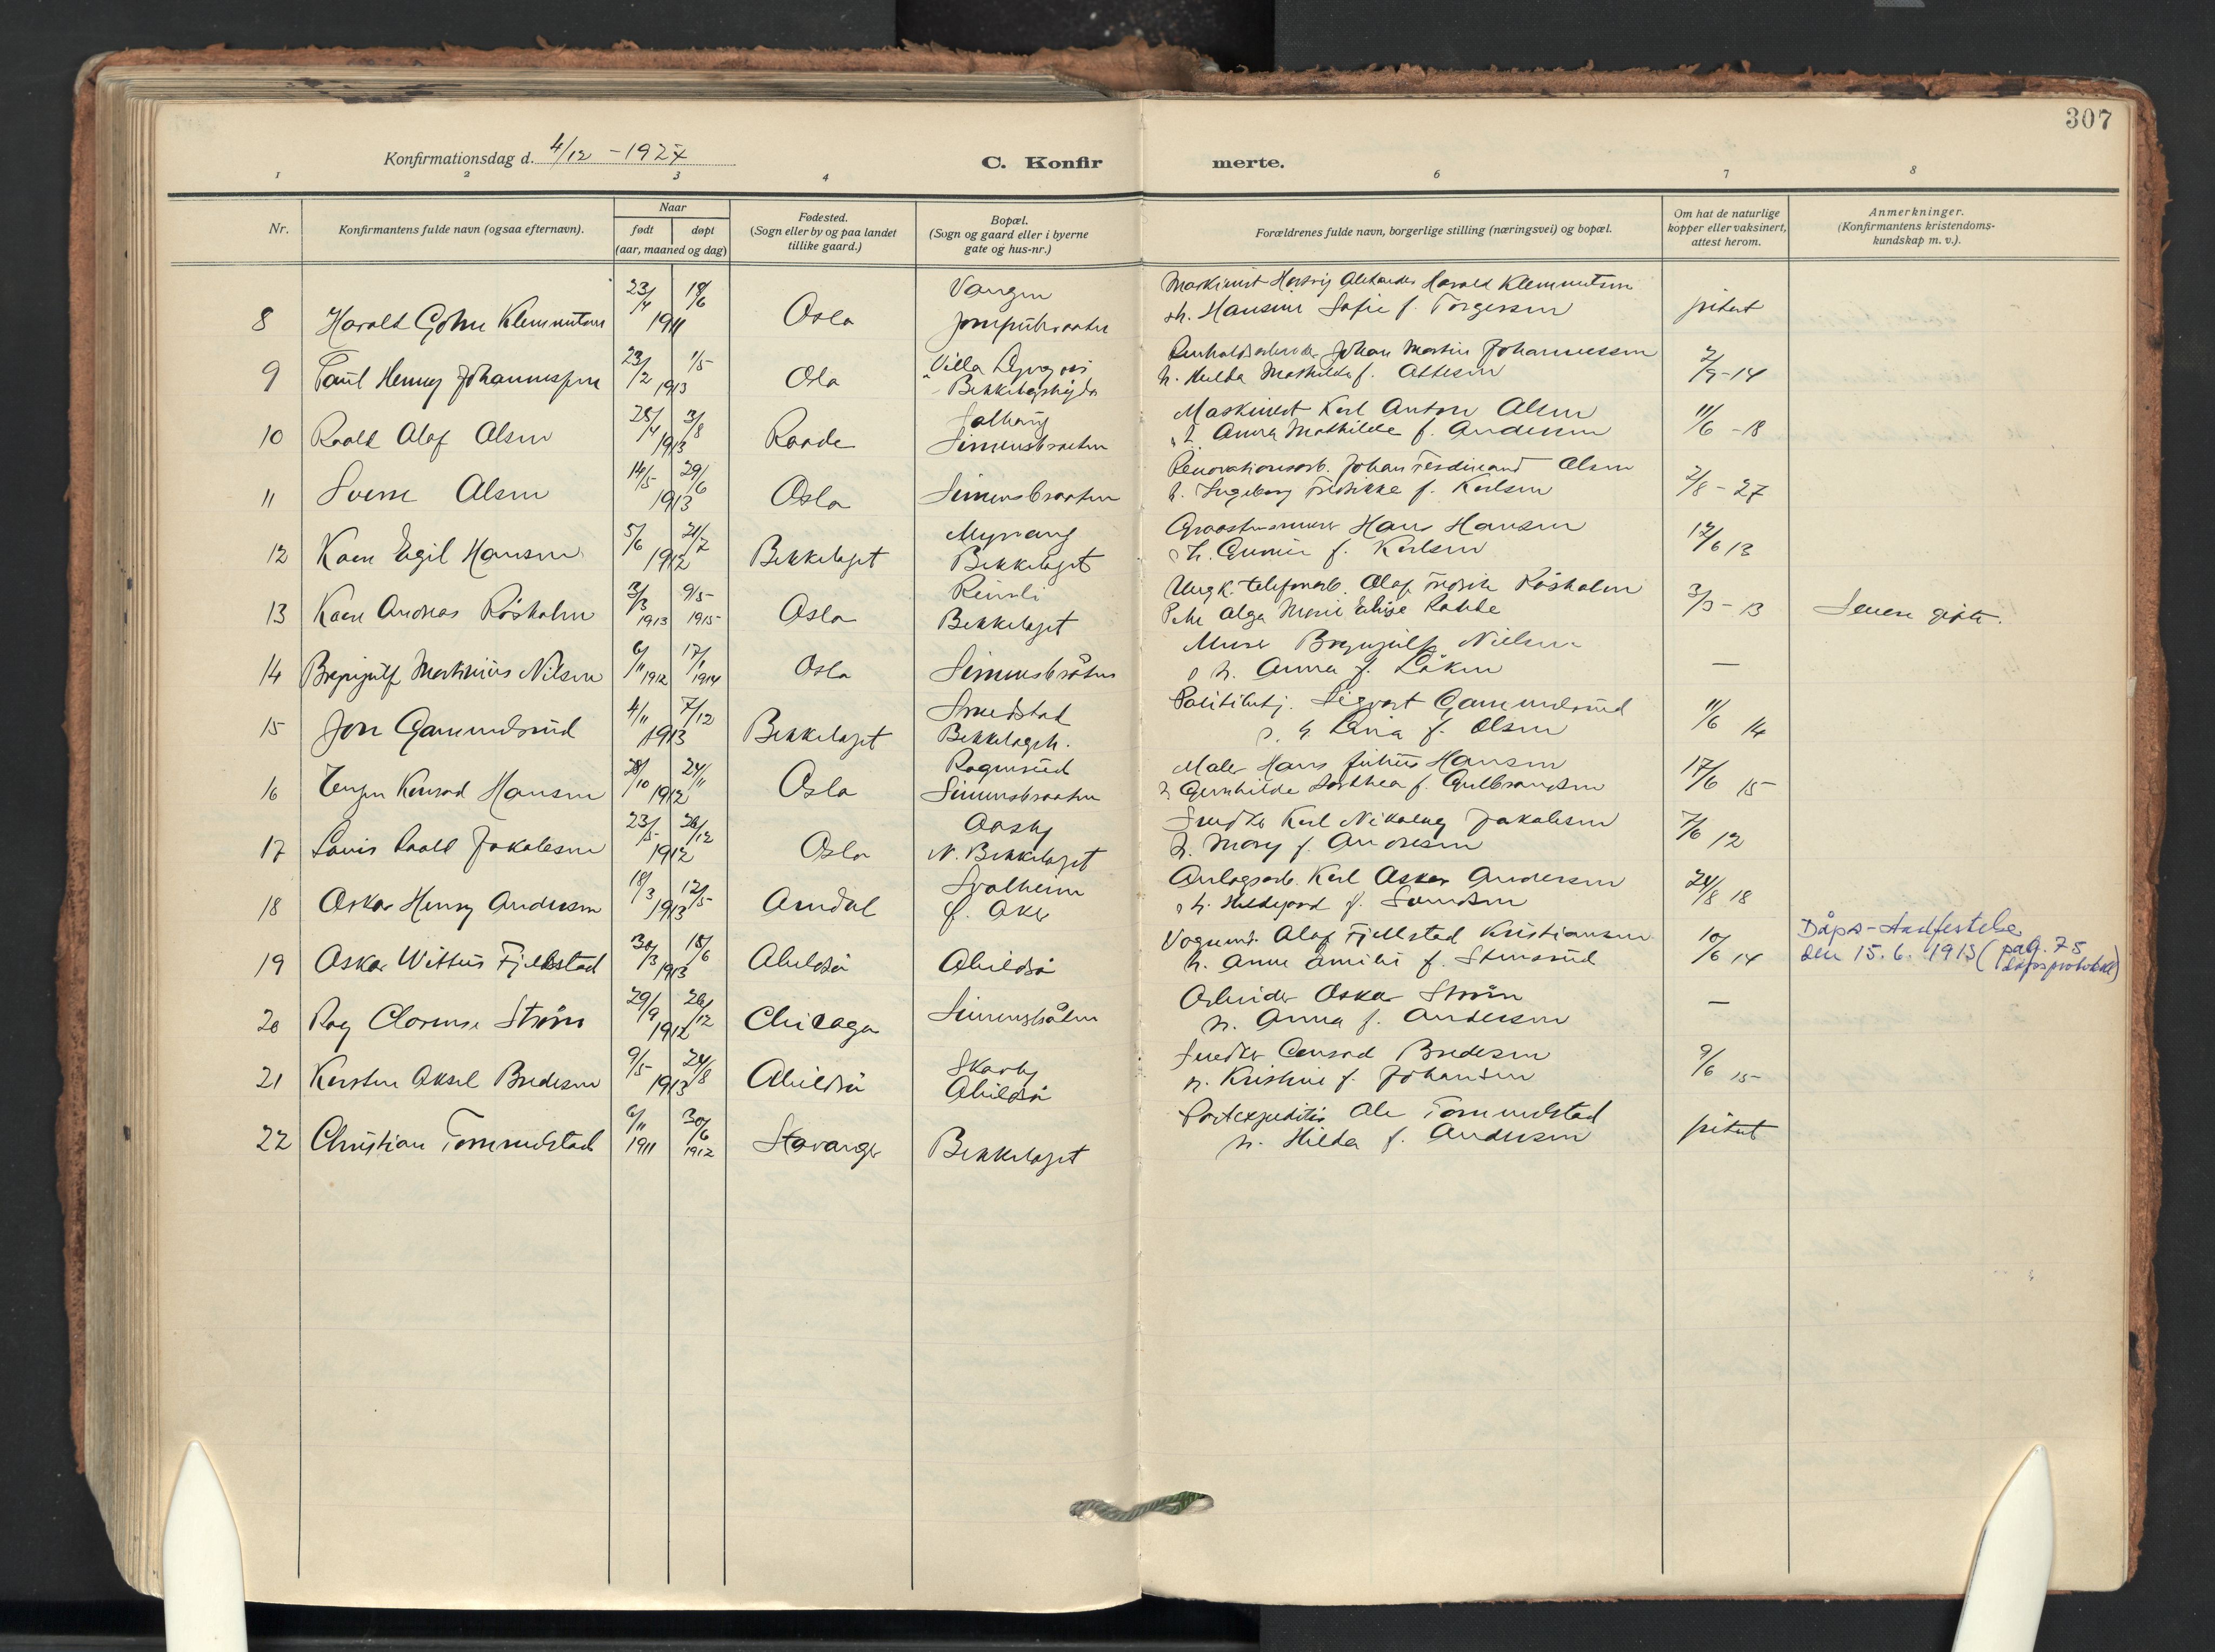 307
Konfirmationsdag d. 4/12 - 1927
C. Konfir merte.
1 2 3 4 6 7 8
Nr.
Konfirmantens fulde navn (ogsaa efternavn).
Naar
født døpt
(aar, maaned og dag)
Fødested.
(Sogn eller by og paa landet
tillike gaard.)
Bopæl.
(Sogn og gaard eller i byerne
gate og hus-nr.)
Forældrenes fulde navn, borgerlige stilling (næringsvei) og bopæl.
Om hat de naturlige
kopper eller vaksinert,
attest herom.
Anmerkninger.
(Konfirmantens kristendoms-
kundskap m. v.).
Harald Klemmetsen
8 Harald John Klemmetsen 23/4 19/6 1911 Oslo
h. Hansine Sofie f. Torgersen
9 Paul Henry Johannessen 23/2 1/5 1913 Oslo Villa
Bekkelagshøgda
Johan Martin Johannessen
h. Hulda Mathilde f. 2/9-14
10 Roald Olaf Olsen 25/4 3/8 1913 Raade
Simensbraaten
Maskinist Karl Anton Olsen
h. Anna Mathilde f. Andersen 11/6 - 18
11 Sverre Olsen 14/5 29/6 1913 Oslo Simensbraaten
Renovationsarb. Johan Ferdinand Olsen
h. Ingeborg Fredrikke f. Karlsen 2/8 - 27
12 Kaare Egil Hansen 5/6 21/7 1912 Bekkelaget
Bekkelaget
Hans Hansen
h. Gunda f. Karlsen 12/6 13
13 Kaare Andreas Røsholm 3/3 1913 9/5 1915 Oslo
Bekkelaget
Ungk. telefonarb. Olaf Fredrik Røsholm
Pike Olga Marie Elise 3/5 - 13
Senere gift.
14 Brynjulf Martinius Nilsen 6/11 1912 17/1 1914 Oslo Simensbråten
Murer Brynjulf Nielsen
h. Anna f. Løken —
15 Jon Gamundsrud 4/11 7/12 1913 Bekkelaget
Smedstad
Bekkelagsh.
Politibetj. Sigvart Gamundsrud
f. Olsen 11/6 14
16 Konrad Hansen 28/10 24/11 1912 Oslo
Simensbraaten
Maler Hans Julius Hansen
h. Gunhilde Dorthea f. Gulbrandsen 17/6 15
17 Louis Roald Jakobsen 23/5 26/12 1912 Oslo
Aasly
N. Bekkelaget
Snedker Karl Nikolay Jakobsen
h. Mary f. Andresen 7/6 12
18 Oskar Henry Andersen 18/3 12/5 1913
Solheim
Anlegsarb. Karl Oskar Andersen
h. Hildegard f. 24/8 18
19 Oskar Fjellstad 30/3 15/6 1913 Abildsø Abildsø
Vognm. Olaf Fjellstad Kristiansen
h. Anne Emilie f. Stensrud 10/6 14
Dåps-stadfestelse
den 15.6.1913 (pag. 75
dåpsprotokoll)
20 Roy Clarense Strøm 29/9 26/12 1912 Chicago Simensbråten
Arbeider Oskar Strøm
h. Anna f. Andersen —
21 Karsten Aksel Bredesen 9/5 24/8 1913 Abildsø
Abildsø
Snedker Conrad Bredesen
h. Kristine f. Johansen 9/6 15
22 Christian Tommelstad 6/11 1911 30/6 1912 Stavanger Bekkelaget
Postexpeditør Ole Tommelstad
h. Hilda f. Andersen